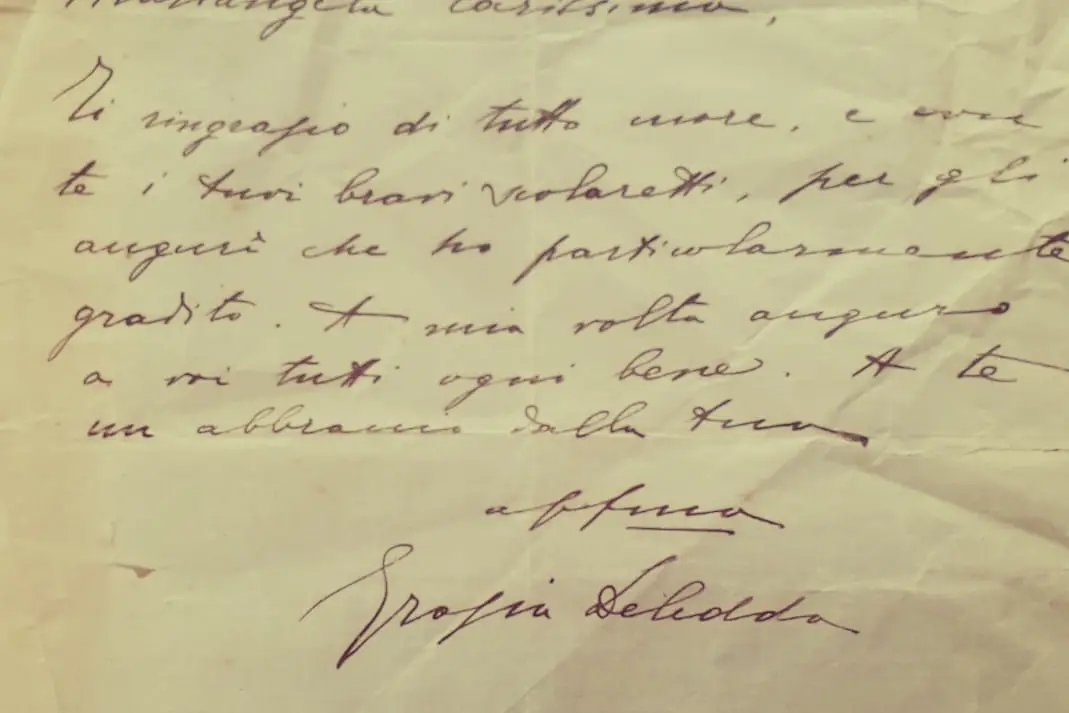 Mariangela carissima,
Ti ringrazio di tutto cuore, e con
te i tuoi bravi scolaretti, per gli
auguri che ho particolarmente
gradito. A mia volta auguro
a voi tutti ogni bene. A te
un abbraccio dalla tua
aff.ma
Grazia Deledda